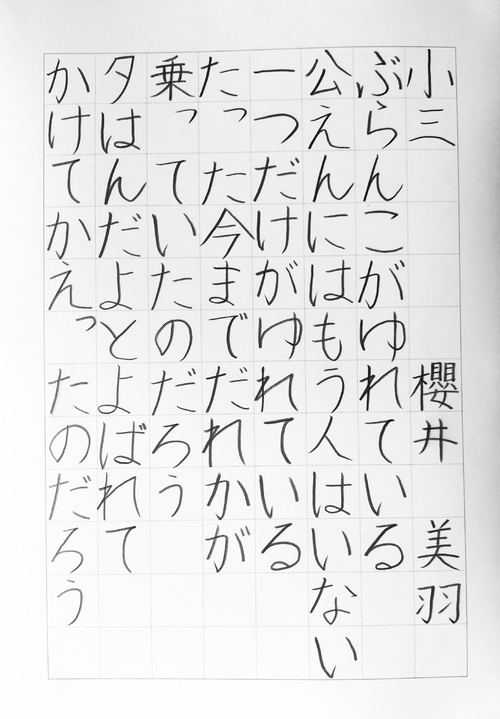 小三 櫻井 美羽
ぶらんこがゆれている
公えんにはもう人はいない
一つだけがゆれている
たったた今までだれかが
乗っていたのだろう
夕はんだよとよばれて
かけてかえったのだろう